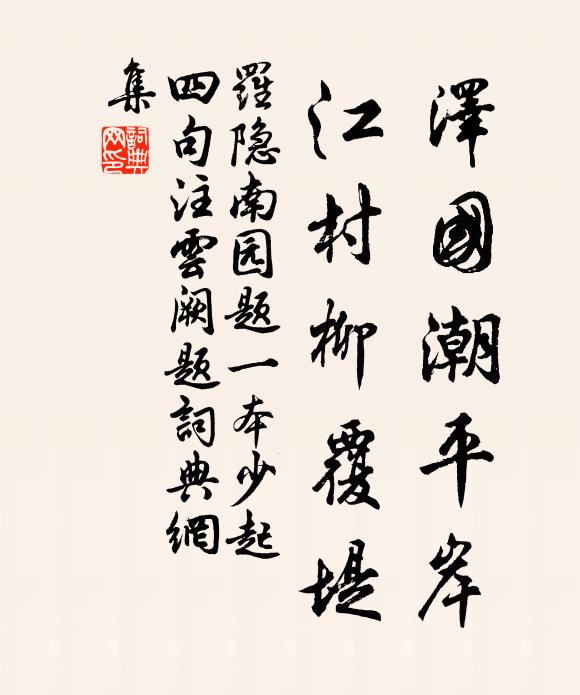 澤國潮平岸
江村柳覆堤
羅隐南园题一本少起
四句注雲阙题詞典網
集
詞典
网印